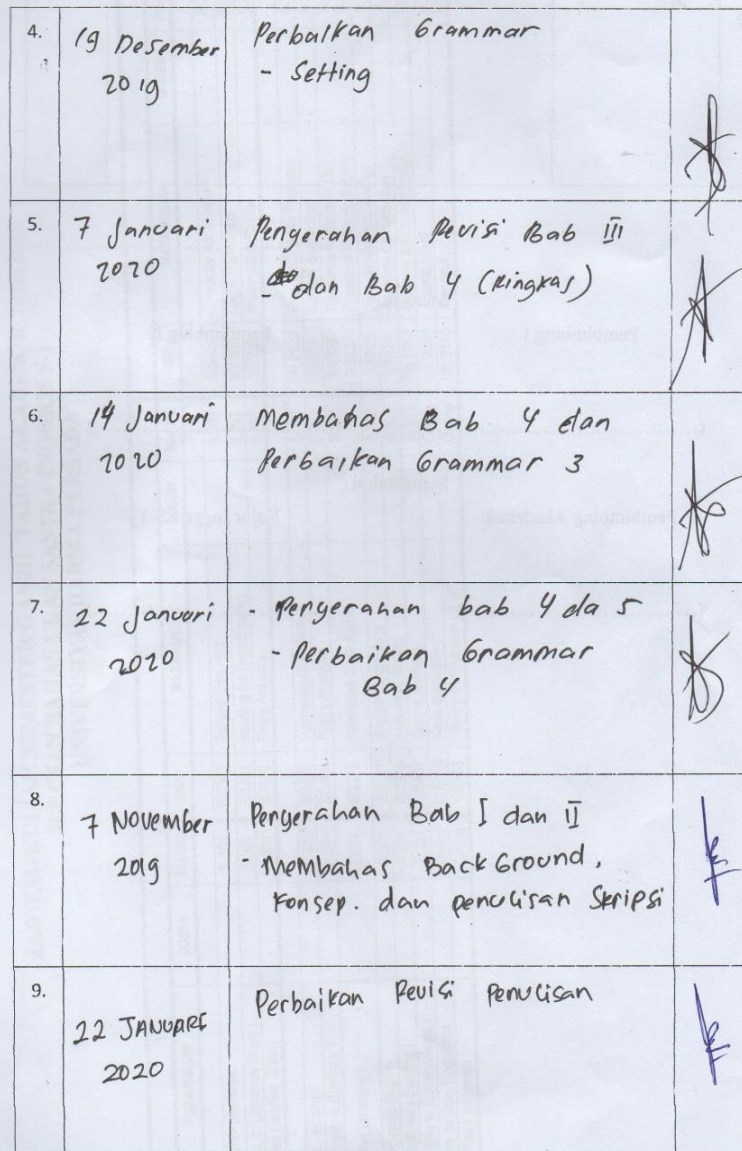 4.
19 Desember
2019
Perbaikan Grammar
- Setting
5.
7 Januari
2020
Pengerahan Revisi Bab III
- dan Bab 4 (Ringkas)
6.
14 Januari
2020
Membahas Bab 4 dan
Perbaikan Grammar 3
7.
22 Januari
2020
- Penyerahan bab 4 da 5
- Perbaikan Grammar
Bab 4
8.
7 November
2019
Penyerahan Bab I dan II
- Membahas BackGround,
Konsep. dan penulisan Skripsi
9.
22 JANUARI
2020
Perbaikan Revisi Penulisan
Pembimbing I
Pembimbing Akademik